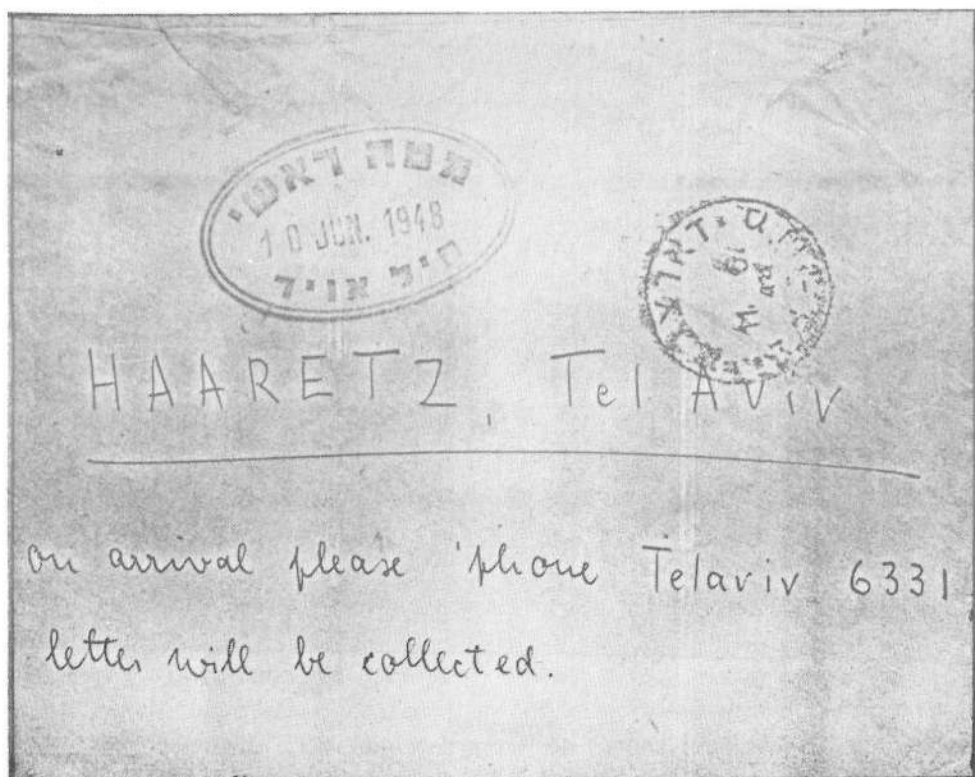 מטה ראשי
10 JUN. 1948
חיל אויר
HAARETZ, Tel Aviv
on arrival please 'phone Telaviv 6331
letter will be collected.